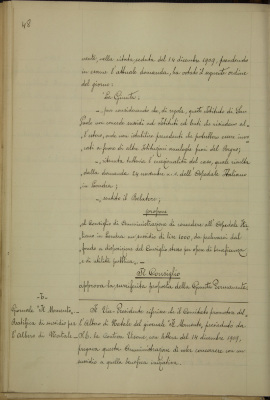 48
nente, nella citata seduta del 14 dicembre 1909, prendendo
in esame l'attuale domanda, ha votato il seguente ordine
del giorno:
"La Giunta:
"- pur considerando che, di regola, questo Istituto di San
Paolo non concede sussidi ad Istituti ed Enti che risiedono al-
l'estero, onde non stabilire precedenti che potrebbero essere invo-
cati a favore di altre Istituzioni analoghe fuori del Regno;
"- ritenuta tuttavia l'eccezionalità del caso, quale risulta
dalla domanda 29 novembre u. s. dell'Ospedale Italiano
in Londra;
"- sentito il Relatore;
propone
al Consiglio di Amministrazione di concedere all'Ospedale Ita-
liano in Londra un sussidio di lire 1000, da prelevarsi dal
fondo a disposizione del Consiglio stesso per opere di beneficenza
e di utilità pubblica."
Il Consiglio
approva la surriferita proposta della Giunta Permanente.
Giornale "Il Momento"
di sussidio per
l'Albero di Natale.
Il Vice Presidente riferisce che il Comitato promotore del-
l'Albero di Natale del giornale "Il Momento", presieduto da
con lettera del 14 dicembre 1909,
pregava questa Amministrazione di voler concorrere con un
sussidio a quella benefica istituzione.